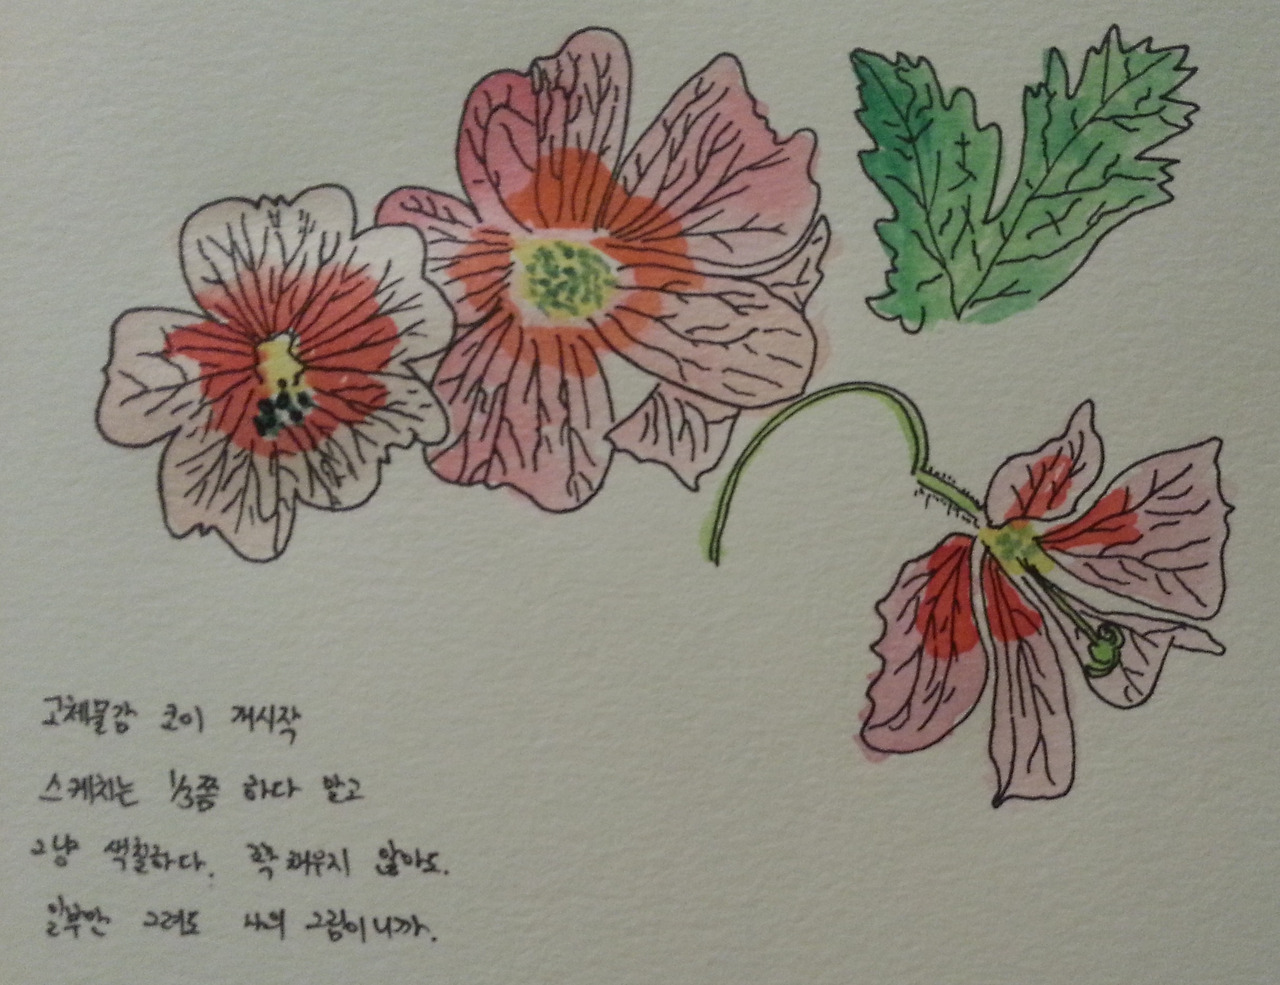 고체물감 코이 개시작
스케치는 1/3쯤 하다 말고
그냥 색칠하다. 꽉 채우지 않아도.
일부만 그려도 나의 그림이니까.